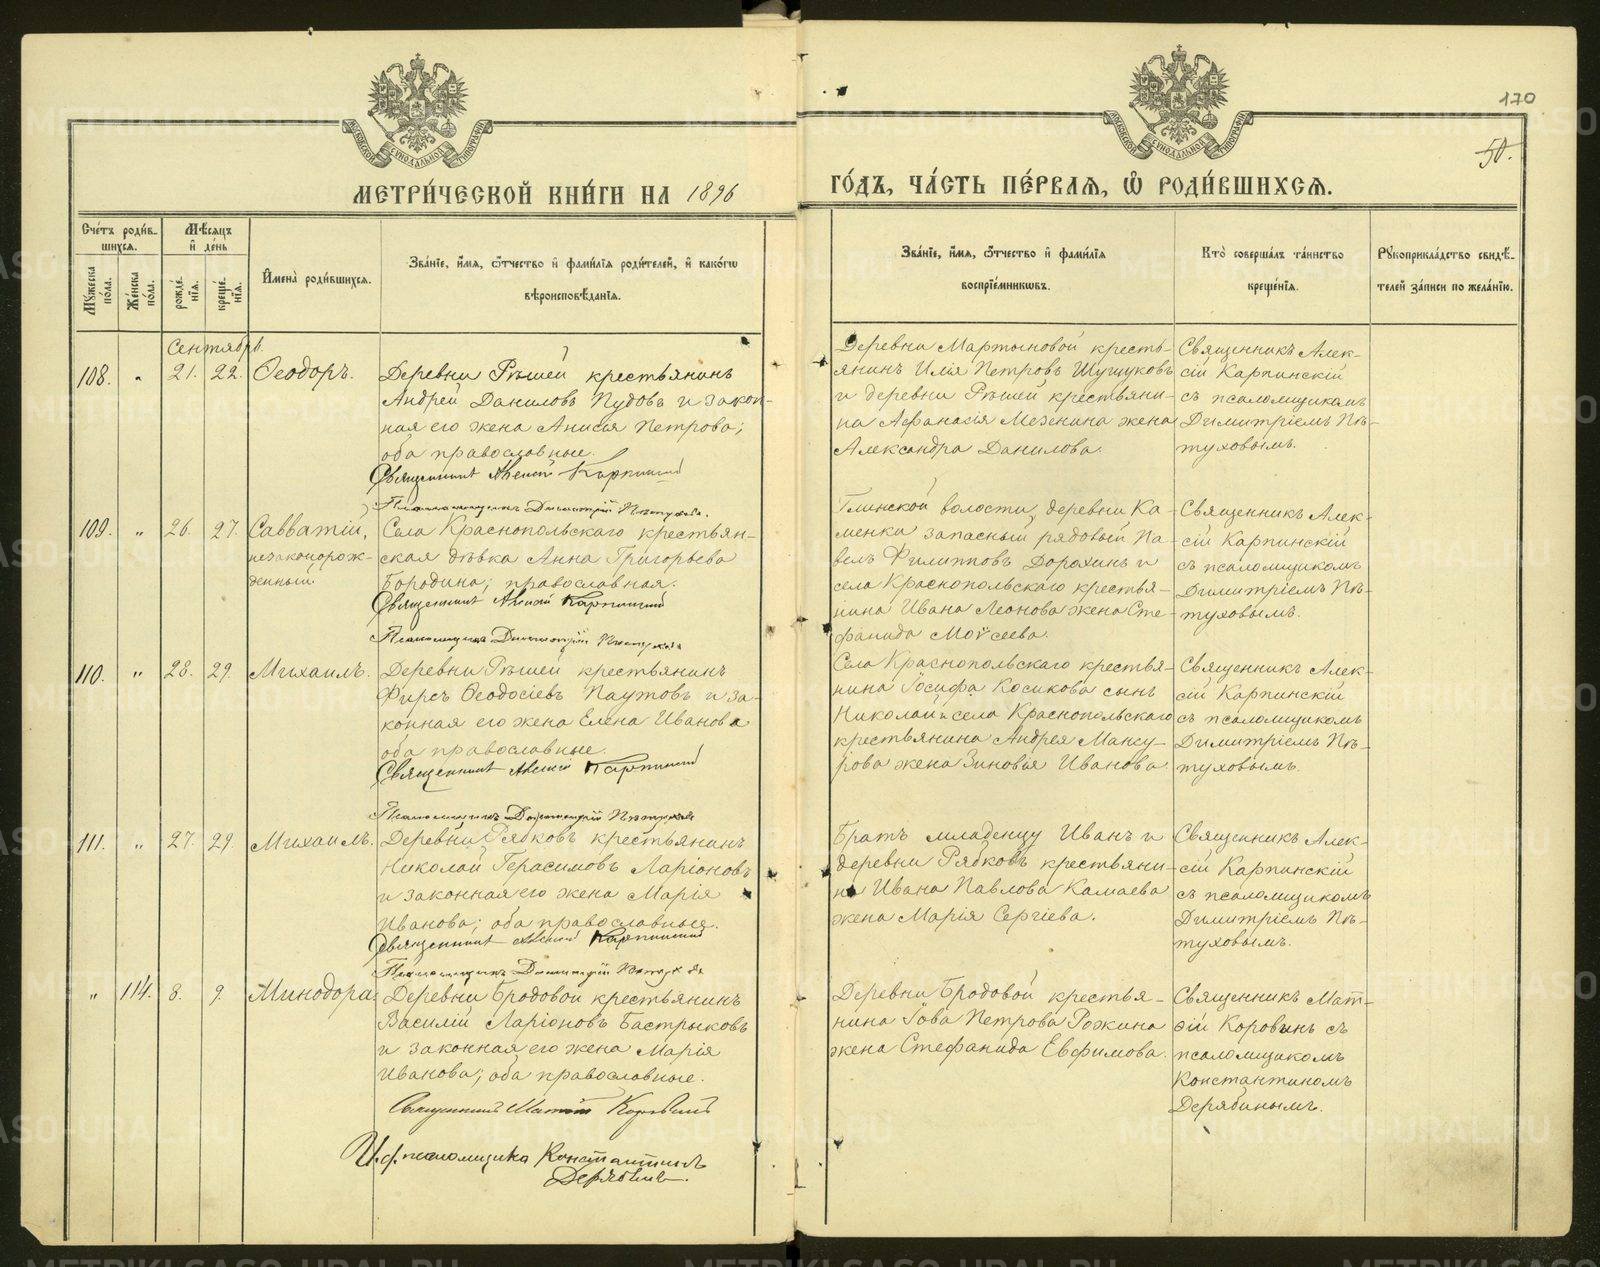 170
50.
МОСКОВСКОЙ СѴНОДАЛЬНОЙ ТИПОГРАФІИ
МОСКОВСКОЙ СѴНОДАЛЬНОЙ ТИПОГРАФІИ
МЕТРИ́ЧЕСКОЙ КНИ́ГИ НА 1896
ГО́ДЪ, ЧА́СТЬ ПЕ́РВАѦ, Ѡ҆ РОДИ́ВШИХСѦ.
Сче́тъ роди́в-
шихсѧ.
Мꙋжеска по́ла.
Же́нска по́ла.
Мѣ́сѧцъ и҆ де́нь
рожде́нїѧ.
креще́нїѧ.
И҆мена̀ роди́вшихсѧ.
Зва́нїе, и҆́мѧ, ѻ҆́тчество и҆ фами́лїѧ роди́телей, и҆ како́гѡ
вѣроисповѣ́данїѧ.
Зва́нїе, и҆́мѧ, ѻ҆́тчество и҆ фами́лїѧ
воспрїе́мникѡвъ.
Кто̀ соверша́лъ та́инство
креще́нїѧ.
Рꙋкоприкла́дство свидѣ́-
телей за́писи по жела́нїю.
Сентябрь.
108. „ 21. 22. Ѳеодоръ.
Деревни Рѣшей крестьянинъ
Андрей Даниловъ Пудовъ и закон-
ная его жена Анисія Петрова;
оба православные.
Священникъ Алексій Карпинскій
Псаломщикъ Димитрій Пѣтуховъ.
Деревни Мартыновой кресть-
янинъ Илія Петровъ Шушуковъ
и деревни Рѣшей крестьяни-
на Аѳанасія Мезенина жена
Александра Данилова.
Священникъ Алек-
сій Карпинскій
съ псаломщикомъ
Димитріемъ Пѣ-
туховымъ.
109. „ 26. 27. Савватій,
незаконорож-
денный.
Села Краснопольскаго крестьян-
ская дѣвка Анна Григорьева
Бородина; православная.
Священникъ Алексій Карпинскій
Псаломщикъ Димитрій Пѣтуховъ
Глинской волости, деревни Ка-
менки запасный рядовый Па-
велъ Филипповъ Дорохинъ и
села Краснопольскаго крестья-
нина Ивана Леонова жена Сте-
фанида Моѵсеева.
Священникъ Алек-
сій Карпинскій
съ псаломщикомъ
Димитріемъ Пѣ-
туховымъ.
110. „ 28. 29. Михаилъ.
Деревни Рѣшей крестьянинъ
Фирсъ Ѳеодосіевъ Паутовъ и за-
конная его жена Елена Иванова
оба православные.
Священникъ Алексій Карпинскій
Псаломщикъ Димитрій Пѣтуховъ
Села Краснопольскаго крестья-
нина Іосифа Косикова сынъ
Николай и села Краснопольскаго
крестьянина Андрея Мансу-
рова жена Зиновія Иванова.
Священникъ Алек-
сій Карпинскій
съ псаломщикомъ
Димитріемъ Пѣ-
туховымъ.
111. „ 27. 29. Михаилъ.
Деревни Рябковъ крестьянинъ
Николай Герасимовъ Ларіоновъ
и законная его жена Марія
Иванова; оба православные.
Священникъ Алексій Карпинскій
Псаломщикъ Димитрій Пѣтуховъ
Братъ младенцу Иванъ и
деревни Рябковъ крестьяни-
на Ивана Павлова Камаева
жена Марія Сергіева.
Священникъ Алек-
сій Карпинскій
съ псаломщикомъ
Димитріемъ Пѣ-
туховымъ.
„ 114. 8. 9. Минодора.
Деревни Бродовой крестьянинъ
Василій Ларіоновъ Бастрыковъ
и законная его жена Марія
Иванова; оба православные.
Священникъ Матѳій Коровинъ
И.д. псаломщика Константинъ
Дерябинъ.
Деревни Бродовой крестья-
нина Іова Петрова Рожина
жена Стефанида Евфимова.
Священникъ Мат-
ѳій Коровинъ съ
псаломщикомъ
Константиномъ
Дерябинымъ.
METRIKI.GASO-URAL.RU